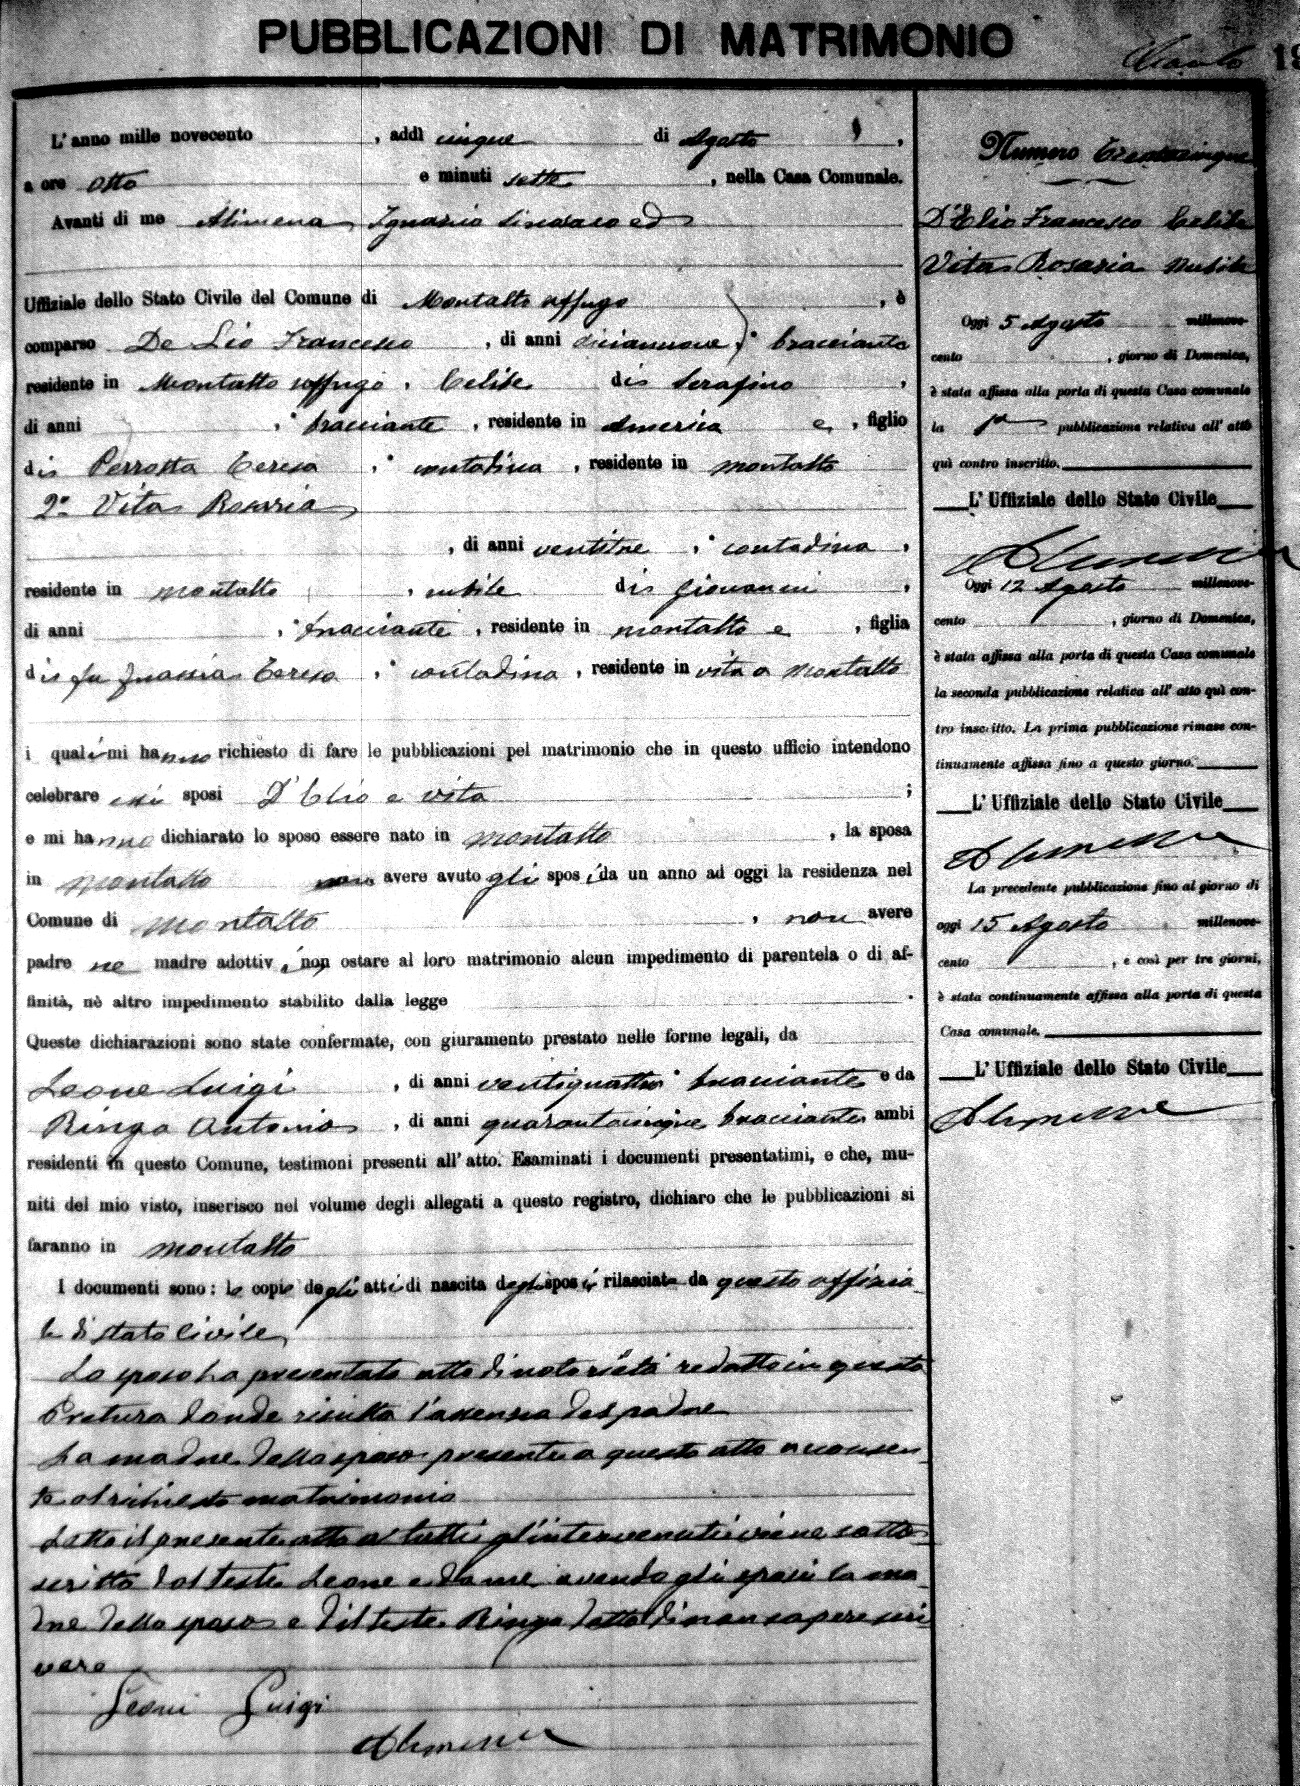 PUBBLICAZIONI DI MATRIMONIO
19
L'anno mille novecento , addì cinque di Agosto ,
a ore otto e minuti sette , nella Casa Comunale.
Avanti di me Alimena Ignazio Sindaco ed
Uffiziale dello Stato Civile del Comune di Montalto Uffugo , è
comparso De Lio Francesco , di anni diciannove , bracciante
residente in Montalto Uffugo , Celibe di Serafino ,
di anni , bracciante , residente in America e , figlio
di Perrotta Teresa , contadina , residente in Montalto
2° Vita Rosaria
, di anni ventitre , contadina ,
residente in Montalto , nubile di Giovanni ,
di anni , bracciante , residente in Montalto e , figlia
di fu Teresa , contadina , residente in vita a Montalto
i quali mi hanno richiesto di fare le pubblicazioni pel matrimonio che in questo ufficio intendono
celebrare essi sposi D'Elio e Vita ;
e mi hanno dichiarato lo sposo essere nato in Montalto , la sposa
in Montalto avere avuto gli sposi da un anno ad oggi la residenza nel
Comune di Montalto , non avere
padre ne madre adottivi, non ostare al loro matrimonio alcun impedimento di parentela o di af-
finità, nè altro impedimento stabilito dalla legge .
Queste dichiarazioni sono state confermate, con giuramento prestato nelle forme legali, da
Leone Luigi , di anni ventiquattro bracciante e da
Ringa Antonio , di anni quarantacinque bracciante ambi
residenti in questo Comune, testimoni presenti all'atto. Esaminati i documenti presentatimi, e che, mu-
niti del mio visto, inserisco nel volume degli allegati a questo registro, dichiaro che le pubblicazioni si
faranno in Montalto
I documenti sono: le copie degli atti di nascita degli sposi rilasciate da questo uffizia
le di stato Civile
Lo sposo ha presentato atto di notorietà redatto in questa
Pretura donde risulta l'assenza del padre
La madre dello sposo presente a questo atto acconsen
te al richiesto matrimonio
Letto il presente atto a tutti gl'intervenuti viene sotto
scritto dal teste Leone e da me avendo gli sposi la ma
dre dello sposo e il teste Ringa detto di non sapere scri
vere
Leoni Luigi
Alimena
Numero trentacinque
D'Elio Francesco Celibe
Vita Rosaria nubile
Oggi 5 Agosto millenove-
cento , giorno di Domenica,
è stata affissa alla porta di questa Casa comunale
la 1a pubblicazione relativa all'atto
quì contro inscritto.
L'Uffiziale dello Stato Civile
Alimena
Oggi 12 Agosto millenove-
cento , giorno di Domenica,
è stata affissa alla porta di questa Casa comunale
la seconda pubblicazione relativa all'atto quì con-
tro inscritto. La prima pubblicazione rimase con-
tinuamente affissa fino a questo giorno.
L'Uffiziale dello Stato Civile
Alimena
La precedente pubblicazione fino al giorno di
oggi 15 Agosto millenove-
cento , e così per tre giorni,
è stata continuamente affissa alla porta di questa
Casa comunale.
L'Uffiziale dello Stato Civile
Alimena